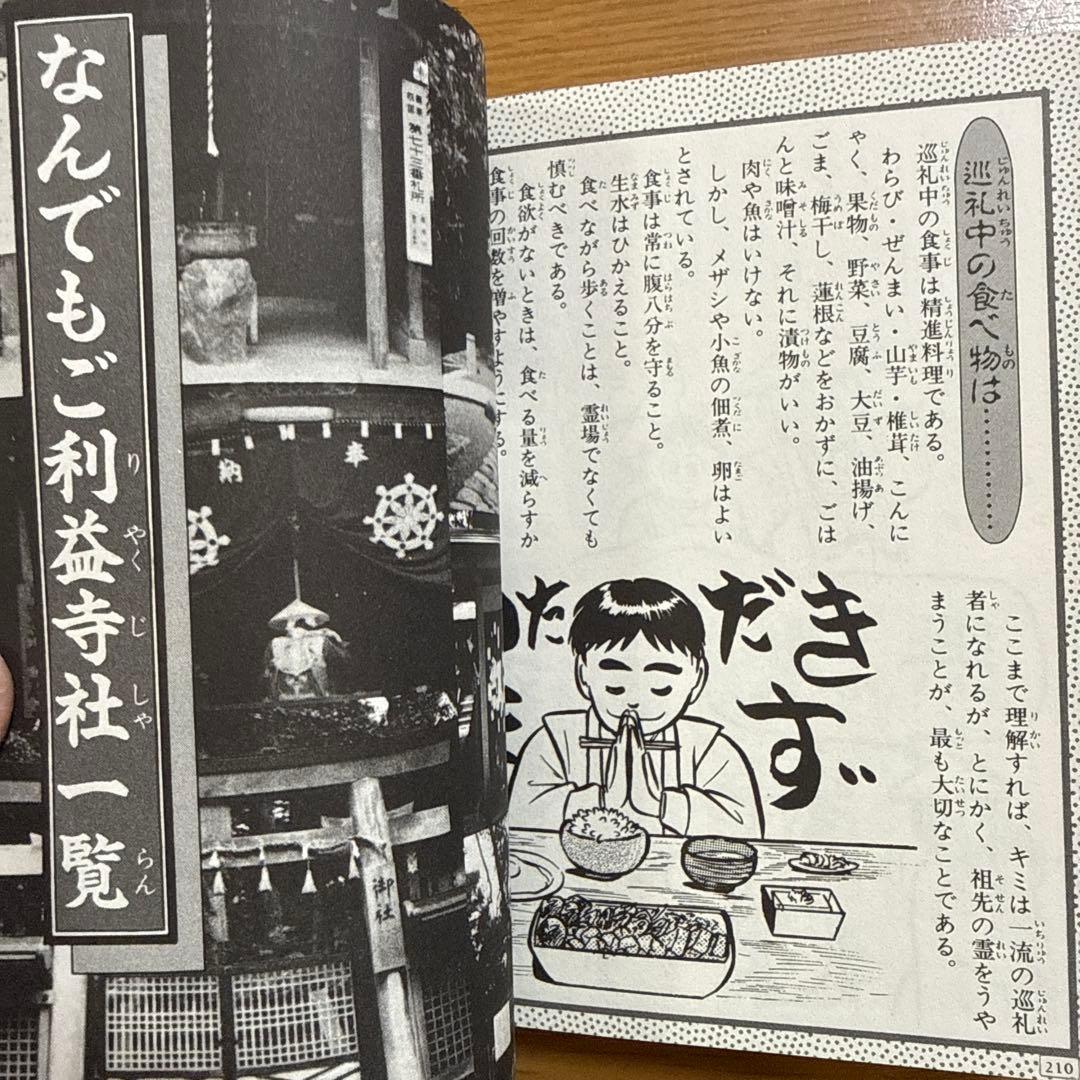 巡礼中の食べ物は…………
巡礼中の食事は精進料理である。
わらび・ぜんまい・山芋・椎茸、こんに
ゃく、果物、野菜、豆腐、大豆、油揚げ、
ごま、梅干し、蓮根などをおかずに、ごは
んと味噌汁、それに漬物がいい。
肉や魚はいけない。
しかし、メザシや小魚の佃煮、卵はよい
とされている。
食事は常に腹八分を守ること。
生水はひかえること。
食べながら歩くことは、霊場でなくても
慎むべきである。
食欲がないときは、食べる量を減らすか
食事の回数を増やすようにする。
ここまで理解すれば、キミは一流の巡礼
者になれるが、とにかく、祖先の霊をうや
まうことが、最も大切なことである。
いただきます
210
なんでもご利益寺社一覧
第七十三番札所
奉
納
御社